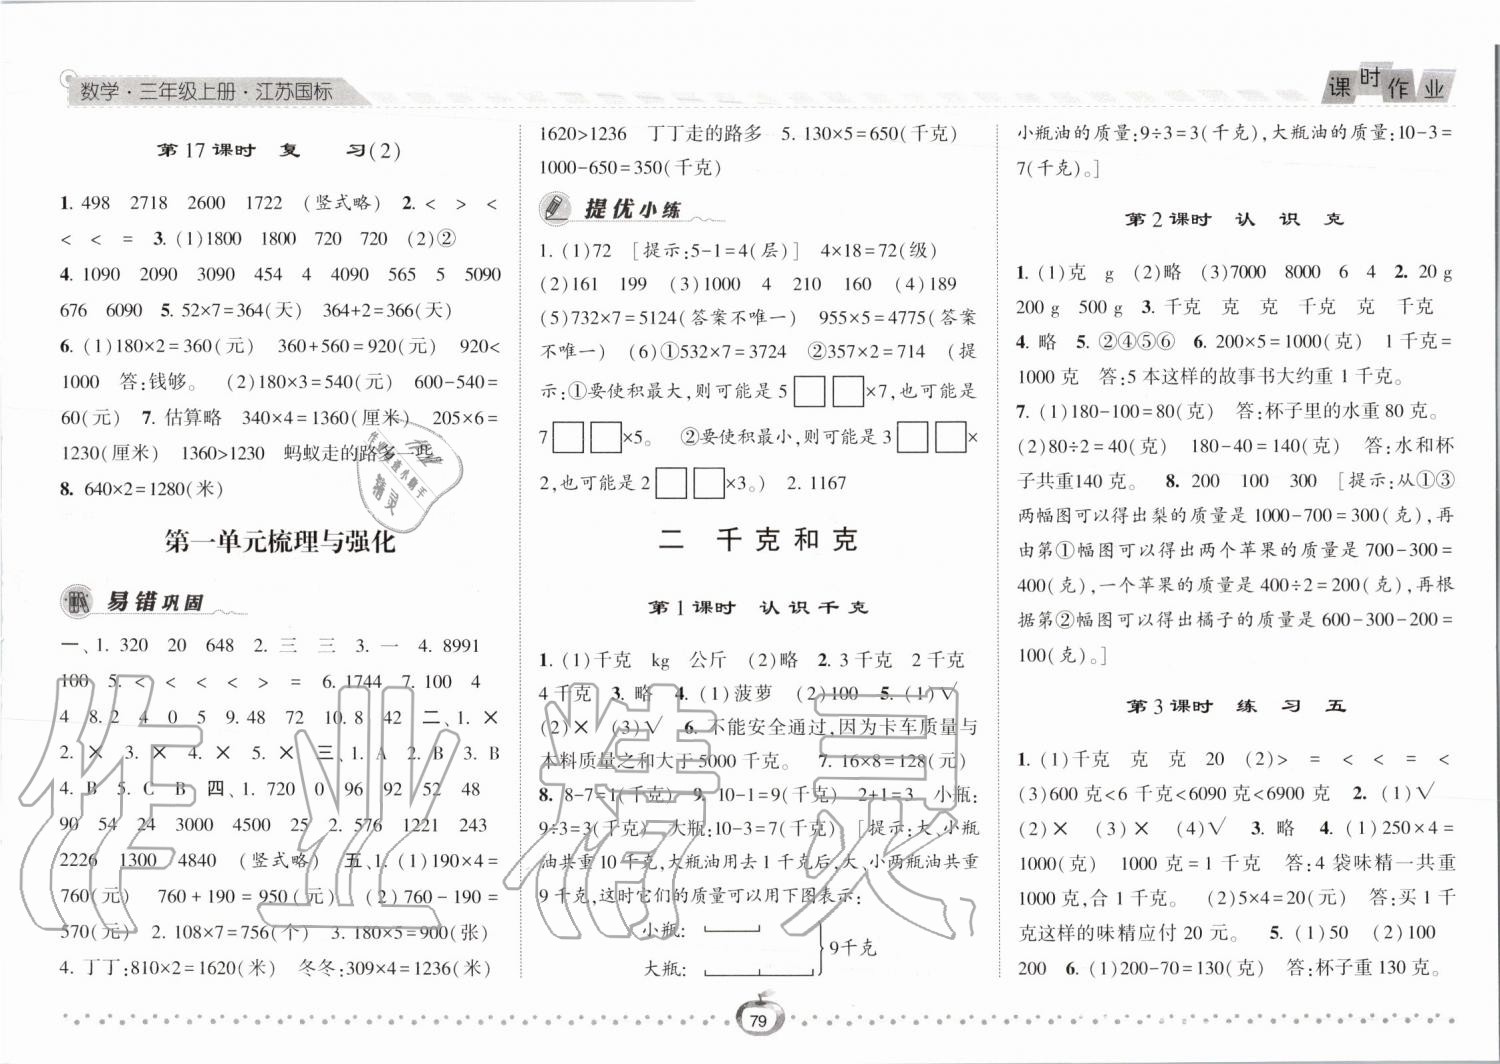 数学·三年级上册·江苏国标
课时作业
第17课时 复 习(2)
1. 498 2718 2600 1722 (竖式略) 2. < > <
< < = 3. (1)1800 1800 720 720 (2)②
4. 1090 2090 3090 454 4 4090 565 5 5090
676 6090 5. 52×7=364(天) 364+2=366(天)
6. (1)180×2=360(元) 360+560=920(元) 920<
1000 答:钱够。 (2)180×3=540(元) 600-540=
60(元) 7. 估算略 340×4=1360(厘米) 205×6=
1230(厘米) 1360>1230 蚂蚁走的路多一些
8. 640×2=1280(米)
第一单元梳理与强化
易错巩固
一、1. 320 20 648 2. 三 三 3. 一 4. 8991
100 5. < < < < > = 6. 1744 7. 100 4
4 8. 2 4 0 5 9. 48 72 10. 8 42 二、1. ×
2. × 3. × 4. × 5. × 三、1. A 2. B 3. B
4. B 5. C B 四、1. 720 0 96 92 52 48
90 54 24 3000 4500 25 2. 576 1221 243
2226 1300 4840 (竖式略) 五、1. (1)190×4=
760(元) 760+190=950(元) (2)760-190=
570(元) 2. 108×7=756(个) 3. 180×5=900(张)
4. 丁丁:810×2=1620(米) 冬冬:309×4=1236(米)
1620>1236 丁丁走的路多 5. 130×5=650(千克)
1000-650=350(千克)
提优小练
1. (1)72 [提示:5-1=4(层)] 4×18=72(级)
(2)161 199 (3)1000 4 210 160 (4)189
(5)732×7=5124(答案不唯一) 955×5=4775(答案
不唯一) (6)①532×7=3724 ②357×2=714 (提
示:①要使积最大,则可能是5□□×7,也可能是
7□□×5。 ②要使积最小,则可能是3□□×
2,也可能是2□□×3。) 2. 1167
二 千克和克
第1课时 认识千克
1. (1)千克 kg 公斤 (2)略 2. 3千克 2千克
4千克 3. 略 4. (1)菠萝 (2)100 5. (1)√
(2)× (3)√ 6. 不能安全通过,因为卡车质量与
本料质量之和大于5000千克。 7. 16×8=128(元)
8. 8-7=1(千克) 9. 10-1=9(千克) 2+1=3 小瓶:
9÷3=3(千克) 大瓶:10-3=7(千克) [提示:大、小瓶
油共重10千克,大瓶油用去1千克后,大、小两瓶油共重
9千克,这时它们的质量可以用下图表示:
小瓶:
9千克
大瓶:
小瓶油的质量:9÷3=3(千克),大瓶油的质量:10-3=
7(千克)。]
第2课时 认 识 克
1. (1)克 g (2)略 (3)7000 8000 6 4 2. 20 g
200 g 500 g 3. 千克 克 克 千克 克 千克
4. 略 5. ②④⑤⑥ 6. 200×5=1000(克) 1千克=
1000克 答:5本这样的故事书大约重1千克。
7. (1)180-100=80(克) 答:杯子里的水重80克。
(2)80÷2=40(克) 180-40=140(克) 答:水和杯
子共重140克。 8. 200 100 300 [提示:从①③
两幅图可以得出梨的质量是1000-700=300(克),再
由第①幅图可以得出两个苹果的质量是700-300=
400(克),一个苹果的质量是400÷2=200(克),再根
据第②幅图可以得出橘子的质量是600-300-200=
100(克)。]
第3课时 练 习 五
1. (1)千克 克 克 20 (2)> = < < = <
(3)600克<6千克<6090克<6900克 2. (1)√
(2)× (3)× (4)√ 3. 略 4. (1)250×4=
1000(克) 1000克=1千克 答:4袋味精一共重
1000克,合1千克。 (2)5×4=20(元) 答:买1千
克这样的味精应付20元。 5. (1)50 (2)100
200 6. (1)200-70=130(克) 答:杯子重130克。
79
作业精灵